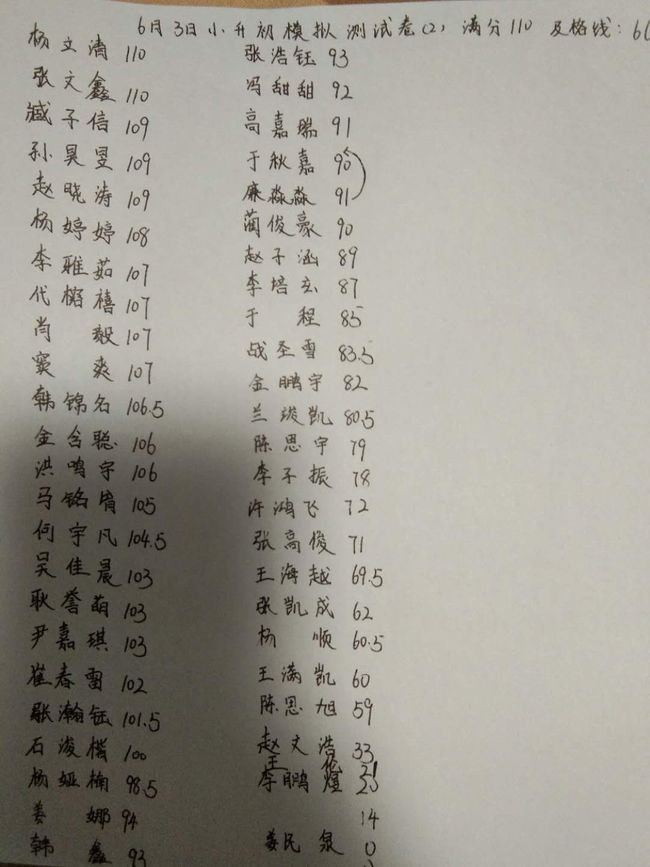 6月3日小升初模拟测试卷(2) 满分110 及格线: 60
杨文涛 110
张文鑫 110
臧子信 109
孙昊昱 109
赵晓涛 109
杨婷婷 108
李雅茹 107
代榕禧 107
肖毅 107
窦爽 107
韩锦名 106.5
金含聪 106
洪鸣宇 106
马铭 105
何宇凡 104.5
吴佳晨 103
耿誉萌 103
尹嘉琪 103
崔春雷 102
张瀚钰 101.5
石浚楷 100
杨娅楠 98.5
姜娜 94
韩鑫 93
张浩钰 93
冯甜甜 92
高嘉瑞 91
于秋嘉 90
廉淼淼 91
蔺俊豪 90
赵子涵 89
李培 87
于程 85
战圣雪 83.5
金鹏宇 82
兰琰凯 80.5
陈思宇 79
李子振 78
许鸿飞 72
张高俊 71
王海越 69.5
张凯成 62
杨顺 60.5
王满凯 60
陈思旭 59
赵文浩 33
王
李鹏煊
14
姜民泉 0